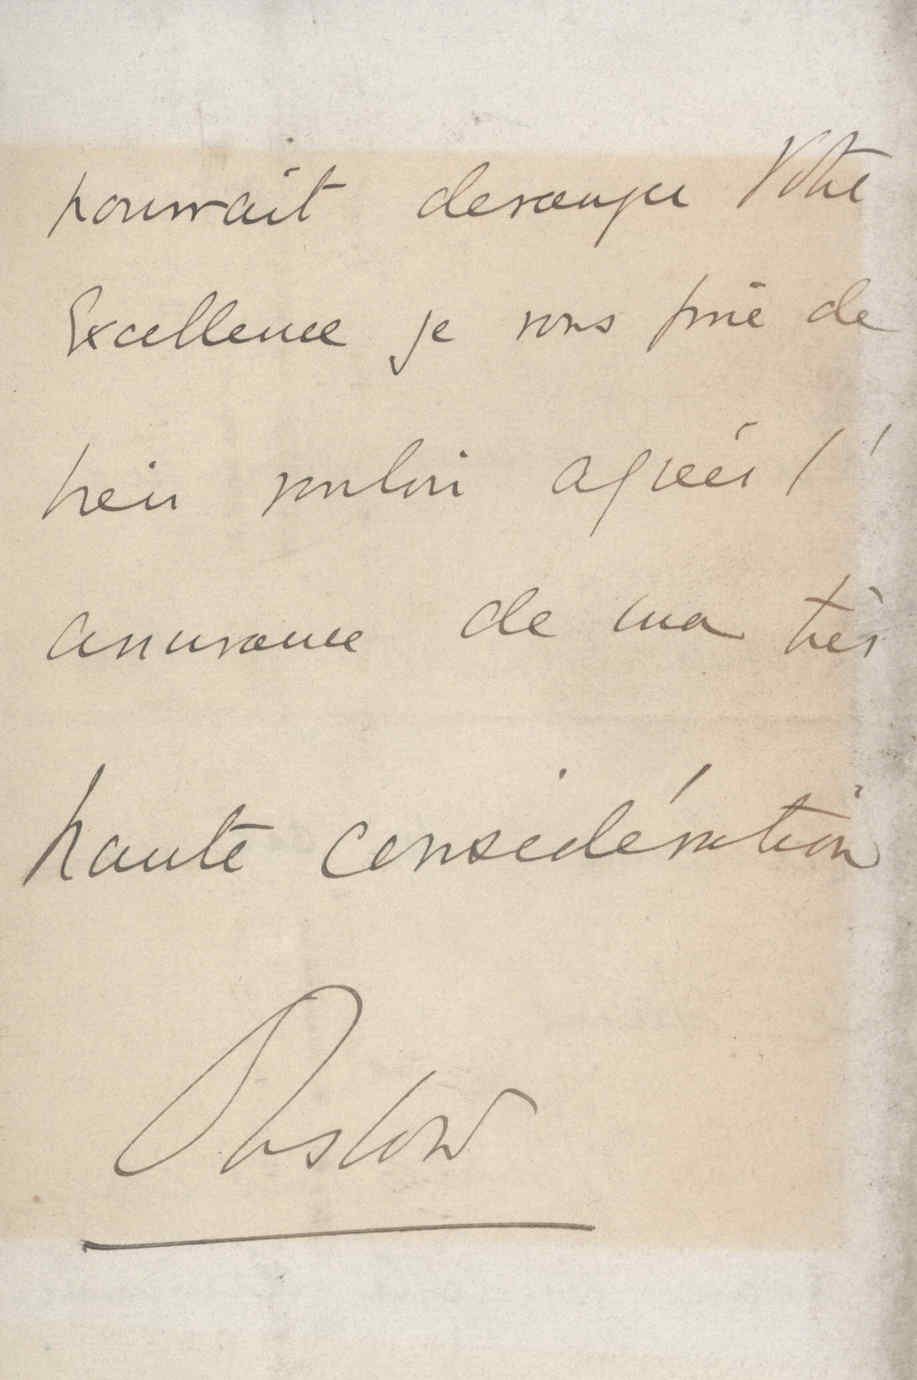 pourrait deranger Votre
Excellence je vous prie de
bien vouloir agréer l'
assurance de ma très
haute considération
Onslow